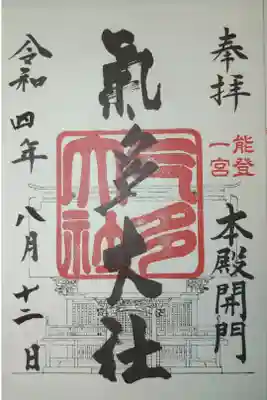 奉拝
能登
一宮
本殿開門
氣多大社
氣多大社
令和四年八月十二日